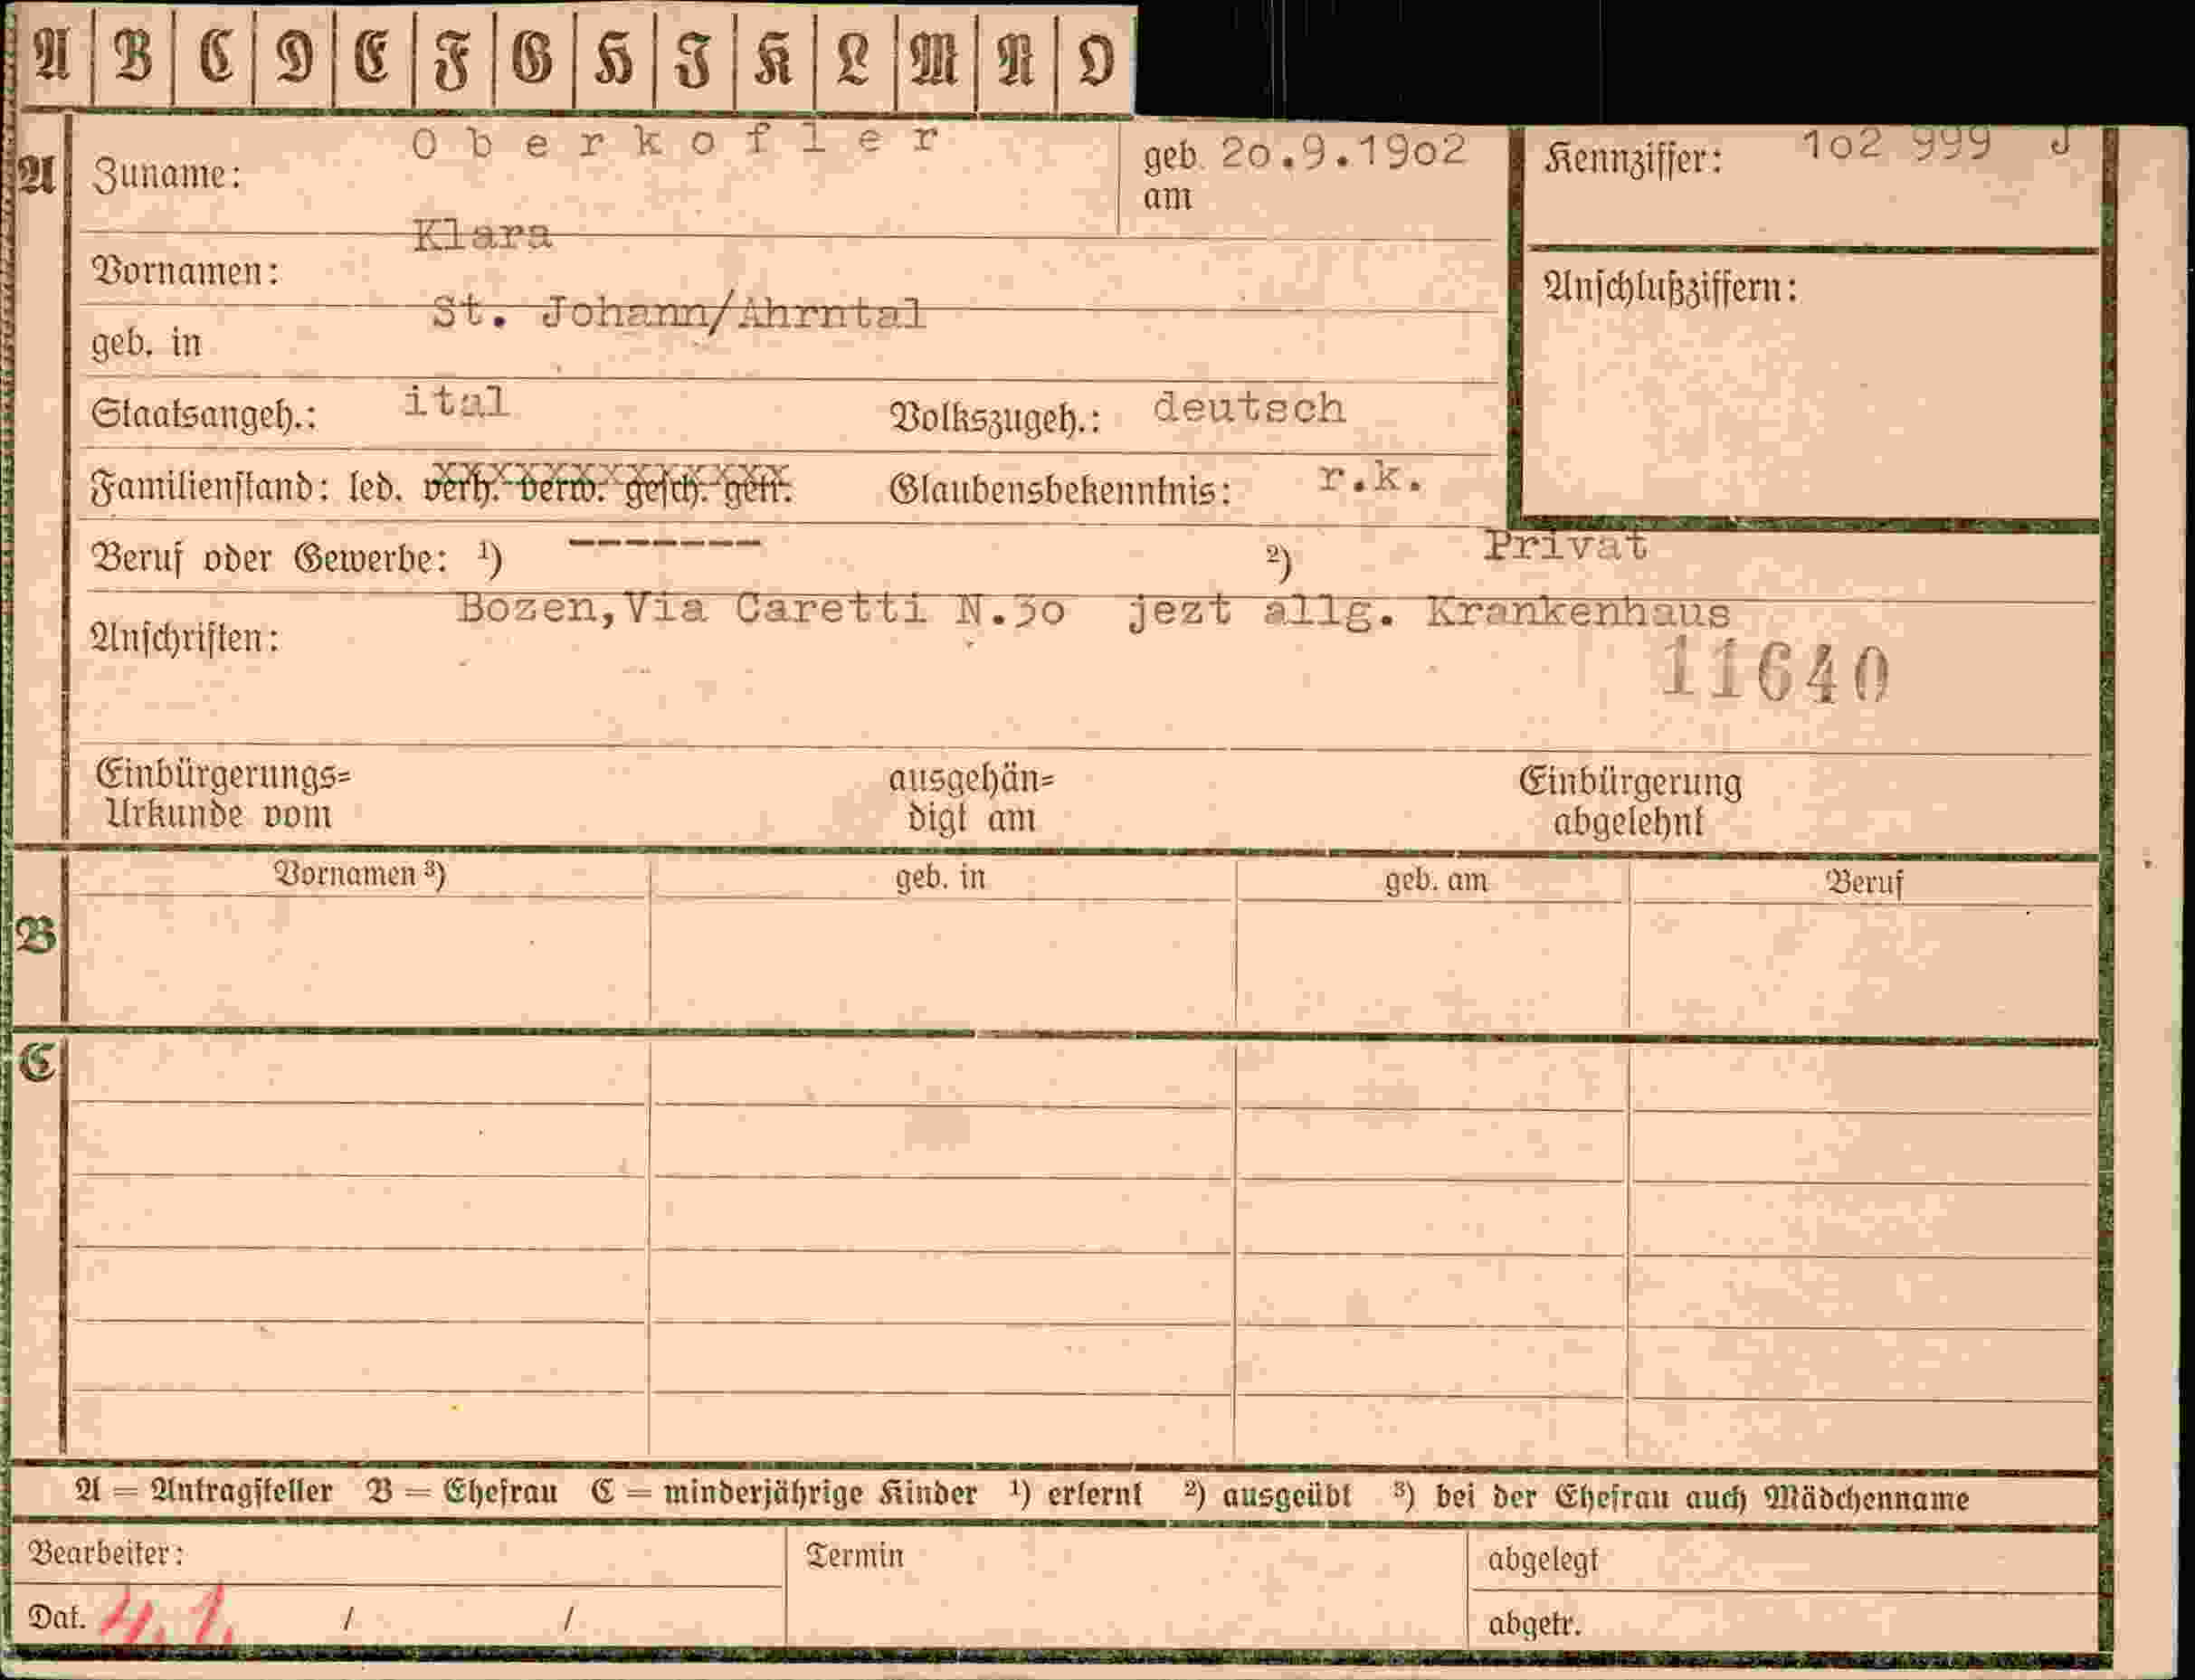 A B C D E F G H I K L M N O
A Zuname: Oberkofler geb. am 20.9.1902 Kennziffer: 102 999 J
Vornamen: Klara
Anschlußziffern:
geb. in St. Johann/Ahrntal
Staatsangeh.: ital Volkszugeh.: deutsch
Familienstand: led. verh. verw. gesch. getr. Glaubensbekenntnis: r.k.
Beruf oder Gewerbe: ¹) ------- ²) Privat
Anschriften: Bozen,Via Caretti N.30 jezt allg. Krankenhaus
11640
Einbürgerungs= ausgehän= Einbürgerung
Urkunde vom digt am abgelehnt
Vornamen ³) geb. in geb. am Beruf
B
C
A = Antragsteller B = Ehefrau C = minderjährige Kinder ¹) erlernt ²) ausgeübt ³) bei der Ehefrau auch Mädchenname
Bearbeiter: Termin abgelegt
Dat. 4.1. / / abgetr.